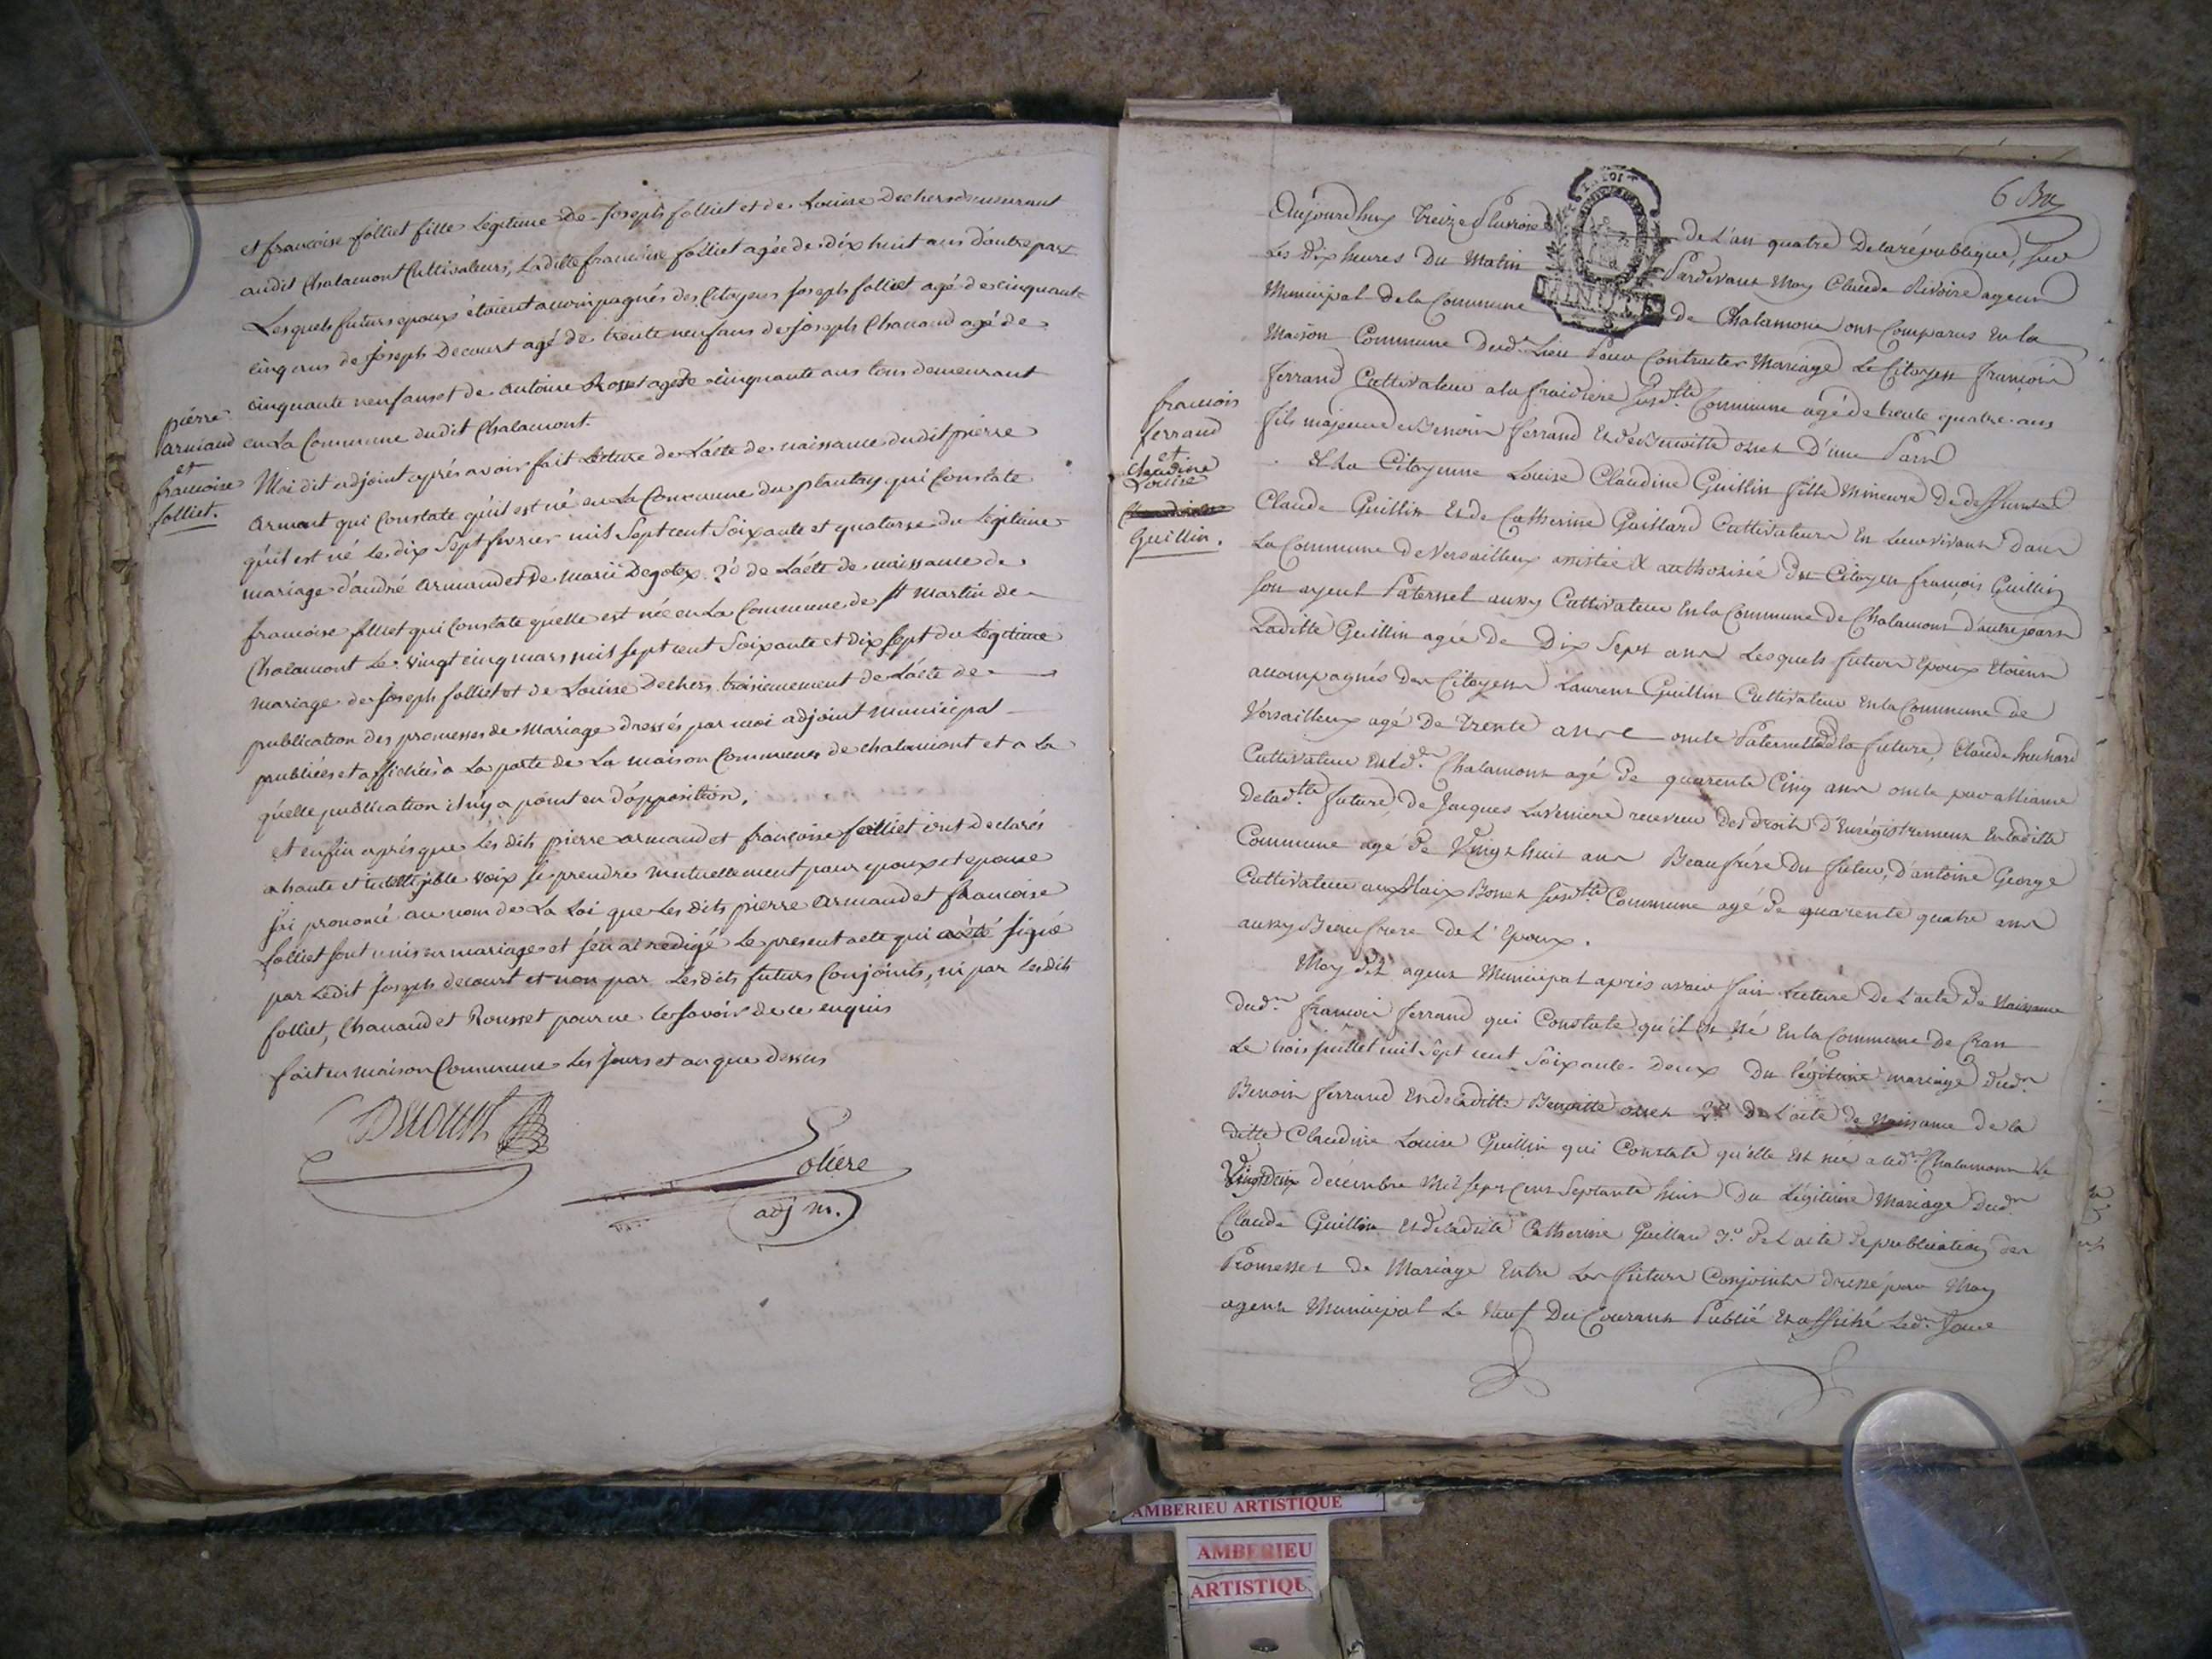 et francoise folliet fille Legitime de Joseph folliet et de Louise Dechers demeurant
audit Chalamont Cultivateurs, Laditte francoise folliet agée de dix huit ans d'autre part
Lesquels futurs epoux étoient accompagnés des Citoyens Joseph folliet agé de cinquante
cinq ans de Joseph Decourt agé de trente neuf ans de Joseph Chanaud agé de
cinquante neuf ans et de antoine Rosset agé de cinquante ans tous demeurant
en La Commune dudit Chalamont.
pierre
armand
et
francoise
folliet.
Moi dit adjoint aprés avoir fait Lecture de L'acte de naissance dudit pierre
armant qui Constate qu'il est né en La Commune du plantay qui Constate
qu'il est né le dix Sept fevrier mil Sept cent Soixante et quatorse du Legitime
mariage d'andré armand et De marie Degotex 2º de L'acte de naissance de
francoise folliet qui Constate qu'elle est née en La Commune de St martin de
Chalamont Le vingt cinq mars mil sept cent Soixante et dix sept du Legitime
mariage de Joseph folliet et de Louise Dechers troisiemement de L'acte de
publication des promesses de Mariage dressés par moi adjoint municipal
publiées et affichées a La porte de La maison Commune de chalamont et a La
quelle publication il n'y a point eu d'opposition,
et enfin aprés que Les dits pierre armand et francoise folliet ont declarés
a haute et intelligible voix se prendre mutuellement pour epoux et epouse
j'ai prononcé au nom de La Loi que Les dits pierre armand et francoise
folliet sont unis en mariage et j'en ai redigé Le present acte qui a été signé
par Ledit Joseph decourt et non par Lesdits futurs Conjoints, ni par Lesdits
folliet, Chanaud et Rousset pour ne le savoir de ce enquis
fait en maison Commune Les Jours et an que dessus
Decourt
Soliere
adj m.
6
Aujourdhuy treize Pluviose de L'an quatre De la république, sur
Les Dix heures Du Matin Pardevant Moy Claude Rivoire agent
MINUTE
Municipal de la Commune de Chalamont ont Comparus En la
Maison Commune dudt Lieu Pour Contracter Mariage Le Citoyen francois
ferrand Cultivateur a la fraidiere susdtte Commune agé de trente quatre ans
fils majeur de Benoit ferrand Et de Benoitte D'une Part
francois
ferrand
et
Claudine
Louise
Guillin.
& La Citoyenne Louise Claudine Guillin fille Mineure De deffunt
Claude Guillin Et de Catherine Gaillard Cultivateurs En Leur vivant Dans
La Commune de Versailleux assistée & authorisée du Citoyen françois Guillin
son ayeul Paternel aussy Cultivateur En la Commune de Chalamont d'autre part
Laditte Guillin agée De Dix Sept ans Lesquels futurs Epoux Etoient
accompagnés des Citoyens Laurent Guillin Cultivateur En la Commune de
Versailleux agé De trente ans oncle Paternel de la future, Claude
Cultivateur audt Chalamont agé de quarente Cinq ans oncle par alliance
De ladtte future, de Jacques Laveniere receveur des droits d'Enrégistrement En laditte
Commune agé de Vingt huit ans Beaufrére du futur, d'antoine George
Cultivateur aux susdtte Commune agé de quarente quatre ans
aussy Beaufrere de L'Epoux.
Moy dit agent Municipal aprés avoir fait Lecture De L'acte De Naissance
dudt francois ferrand qui Constate qu'il Est né En la Commune de Cran
Le trois juillet mil Sept cent Soixante Deux Du légitime mariage dudt
Benoit ferrand Et de laditte Benoitte 2º de L'acte de Naissance de la
ditte Claudine Louise Guillin qui Constate qu'elle Est née audt Chalamont Le
Vingt deux decembre Mil sept Cent Septante huit Du Légitime Mariage dudt
Claude Guillin Et de laditte Catherine Gaillard 3º de L'acte de publication des
Promesses de Mariage Entre Les futurs Conjoints dressé par Moy
agent Municipal Le Neuf Du Courant Publié Et affiché Ledt Jour
AMBERIEU ARTISTIQUE
AMBERIEU
ARTISTIQU